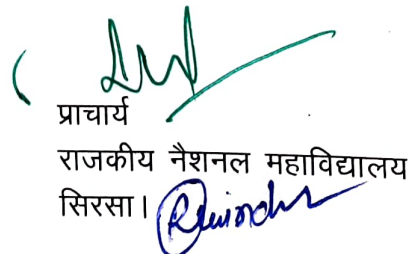 प्राचार्य
राजकीय नैशनल महाविद्यालय
सिरसा।